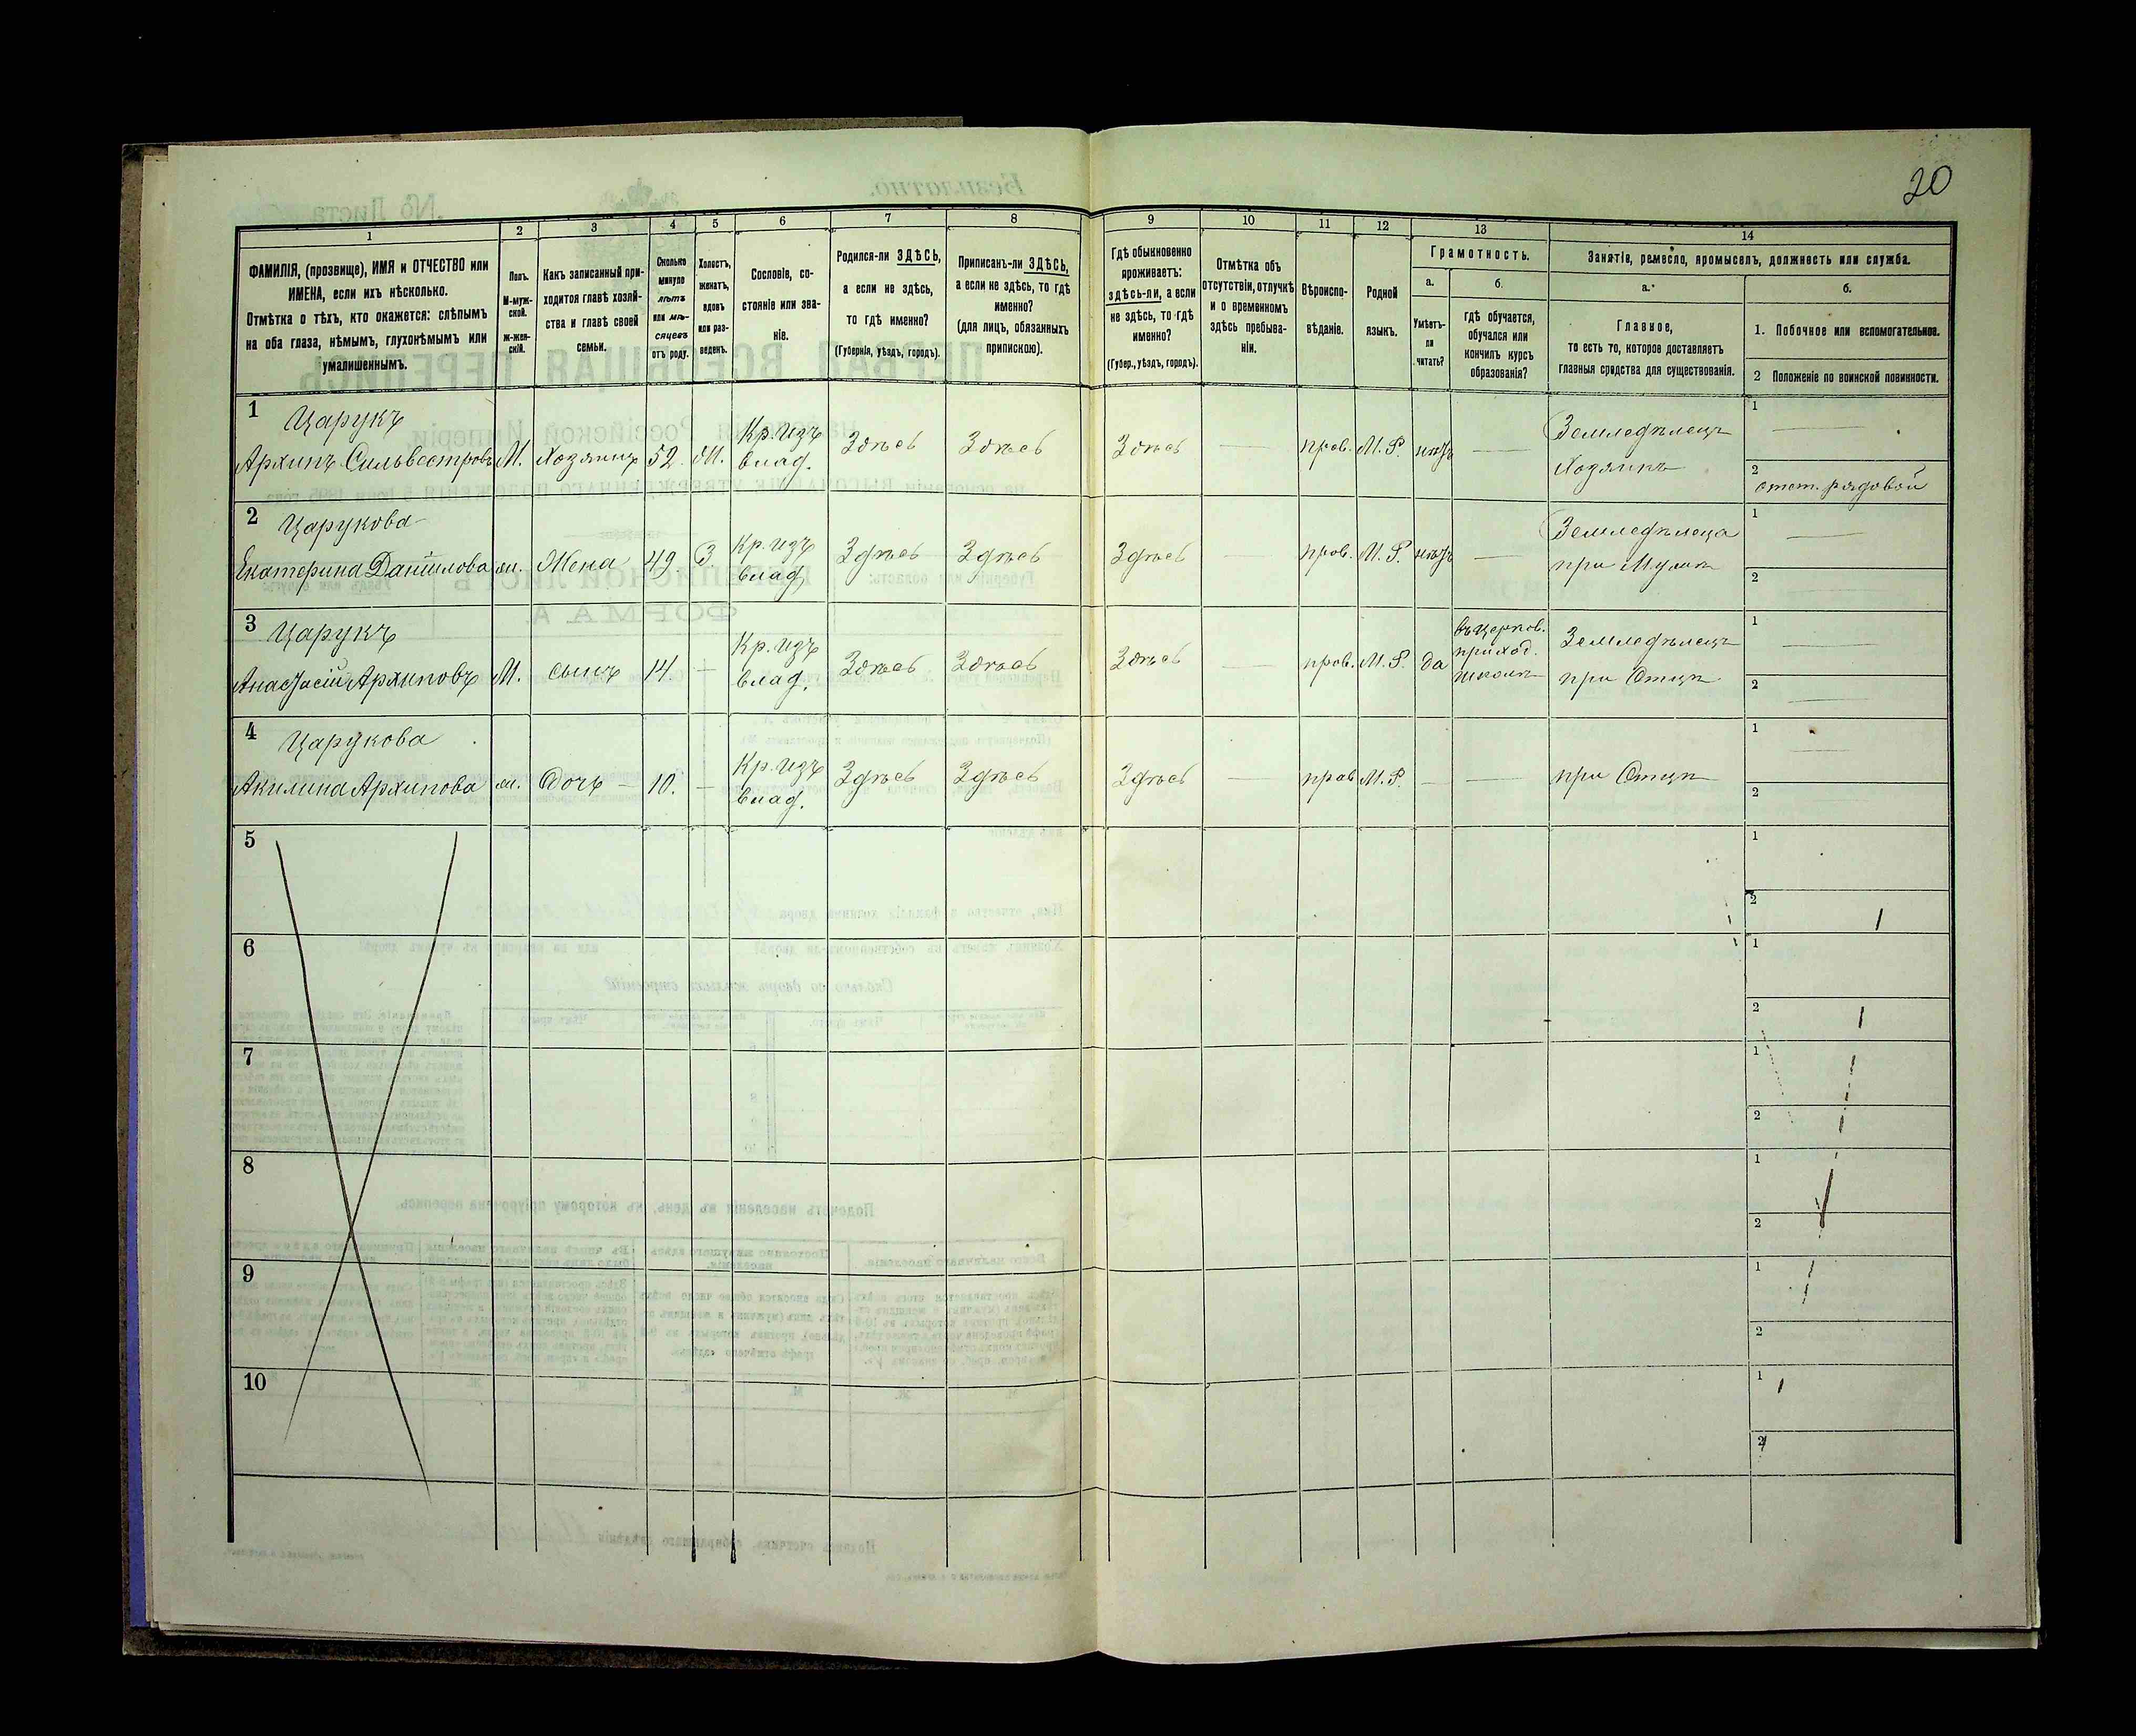 20
1
2
3
4
5
6
7
8
9
10
11
12
13
14
ФАМИЛІЯ, (прозвище), ИМЯ и ОТЧЕСТВО или
ИМЕНА, если ихъ нѣсколько.
Отмѣтка о тѣхъ, кто окажется: слѣпымъ
на оба глаза, нѣмымъ, глухонѣмымъ или
умалишеннымъ.
Полъ.
М-муж-
ской.
ж-жен-
скій.
Какъ записанный при-
ходится главѣ хозяй-
ства и главѣ своей
семьи.
Сколько
минуло
лѣтъ
или мѣ-
сяцевъ
отъ роду.
Холостъ,
женатъ,
вдовъ
или раз-
веденъ.
Сословіе, со-
стояніе или зва-
ніе.
Родился-ли ЗДѢСЬ,
а если не здѣсь,
то гдѣ именно?
(Губернія, уѣздъ, городъ).
Приписанъ-ли ЗДѢСЬ,
а если не здѣсь, то гдѣ
именно?
(для лицъ, обязанныхъ
припискою).
Гдѣ обыкновенно
проживаетъ:
здѣсь-ли, а если
не здѣсь, то гдѣ
именно?
(Губер., уѣздъ, городъ).
Отмѣтка объ
отсутствіи, отлучкѣ
и о временномъ
здѣсь пребыва-
ніи.
Вѣроиспо-
вѣданіе.
Родной
языкъ.
Грамотность.
а.
Умѣетъ-
ли
читать?
б.
гдѣ обучается,
обучался или
кончилъ курсъ
образованія?
Занятіе, ремесло, промыселъ, должность или служба.
а.
Главное,
то есть то, которое доставляетъ
главныя средства для существованія.
б.
1. Побочное или вспомогательное.
2 Положеніе по воинской повинности.
1
Царукъ
Архипъ Сильвестровъ М. Хозяинъ 52. Ж. Кр. изъ влад. Здѣсь Здѣсь Здѣсь — прав. М. Р. нѣтъ — Земледѣлецъ
Хозяинъ
1 —
2 отст. рядовой
2
Царукова
Екатерина Даніилова ж. Жена 49. З. Кр. изъ влад. Здѣсь Здѣсь Здѣсь — прав. М. Р. нѣтъ — Земледѣлица
при Мужѣ
1 —
2 —
3
Царукъ
Анастасій Архиповъ М. сынъ 14. — Кр. изъ влад. Здѣсь Здѣсь Здѣсь — прав. М. Р. да въ церков.
приход.
школѣ
Земледѣлецъ
при Отцѣ
1 —
2 —
4
Царукова
Акилина Архипова ж. Дочь — 10. — Кр. изъ влад. Здѣсь Здѣсь Здѣсь — прав М. Р. — — при Отцѣ
1 —
2 —
5
1
2
6
1
2
7
1
2
8
1
2
9
1
2
10
1
2